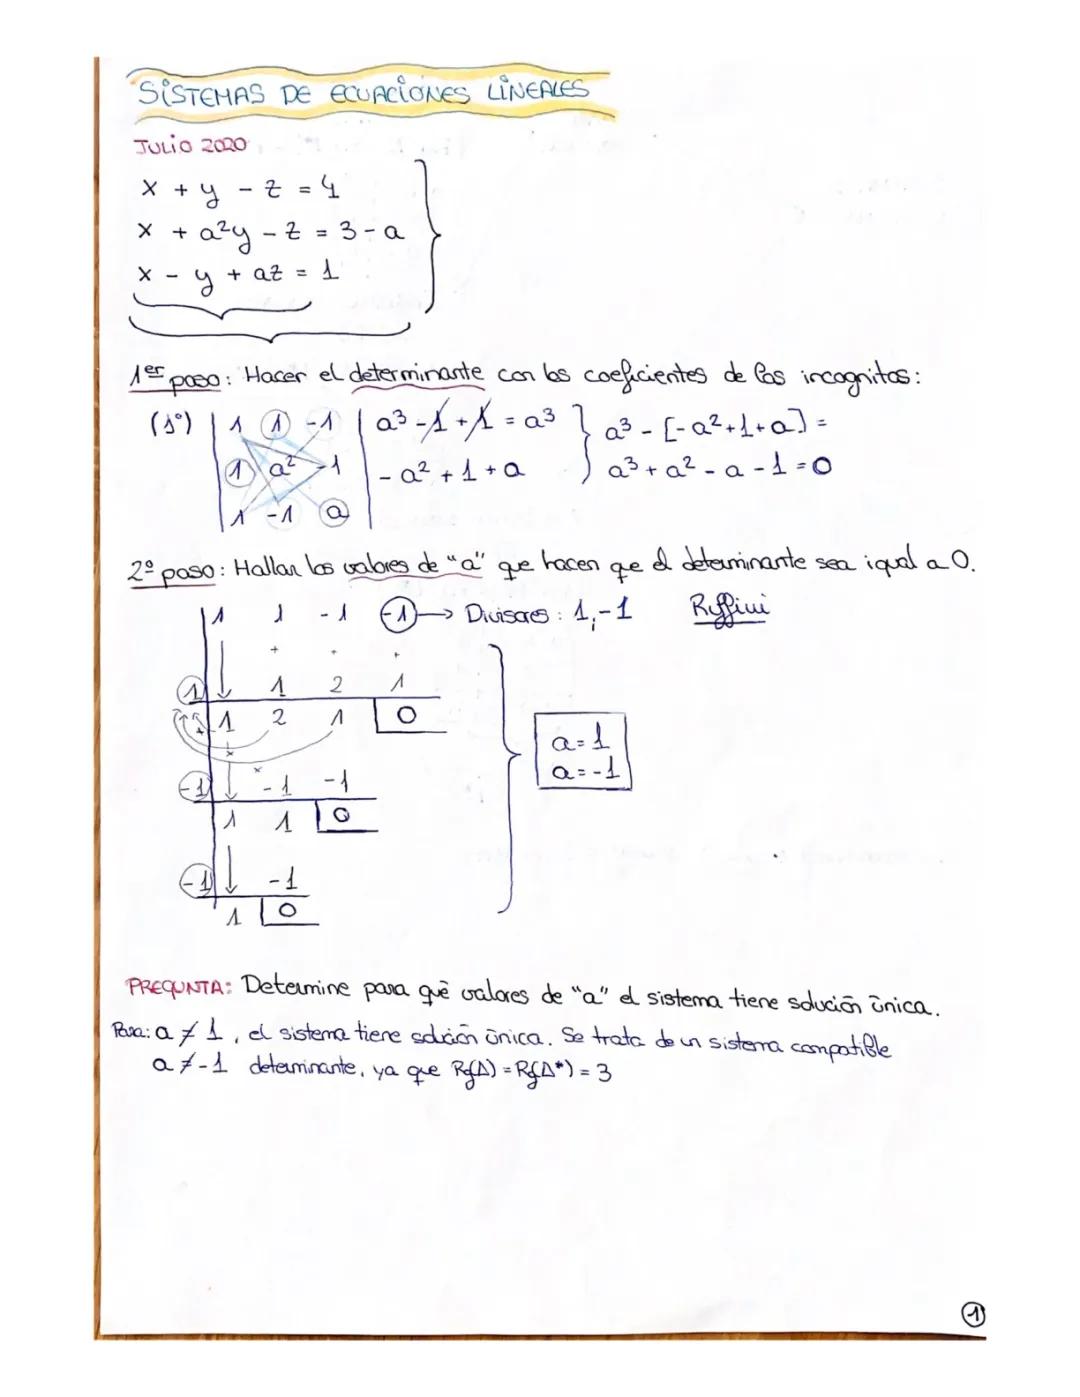 SISTEMAS DE ECUACIONES LINEALES
JULIO 2020
x + y - z = 4
x + a²y - z = 3 - a
x - y + az = 1
1er paso: Hacer el determinante con los coeficientes de las incognitas:
(1º) | 1 1 -1 | a³ - 1 + 1 = a³ } a³ - [-a² + 1 + a] =
| 1 a² -1 | - a² + 1 + a } a³ + a² - a - 1 = 0
| 1 -1 a |
2º paso: Hallar los valores de "a" que hacen que el determinante sea igual a 0.
1 1 -1 -1 → Divisores: 1, -1 Ruffini
+ + +
1 1 2 1
1 2 1 0
-1 -1 -1
1 1 0
-1 -1
1 0
a = 1
a = -1
PREGUNTA: Determine para què valores de "a" el sistema tiene solución única.
Para: a ≠ 1, el sistema tiene solución única. Se trata de un sistema compatible
a ≠ -1 determinante, ya que Rg(A) = Rg(A*) = 3
1